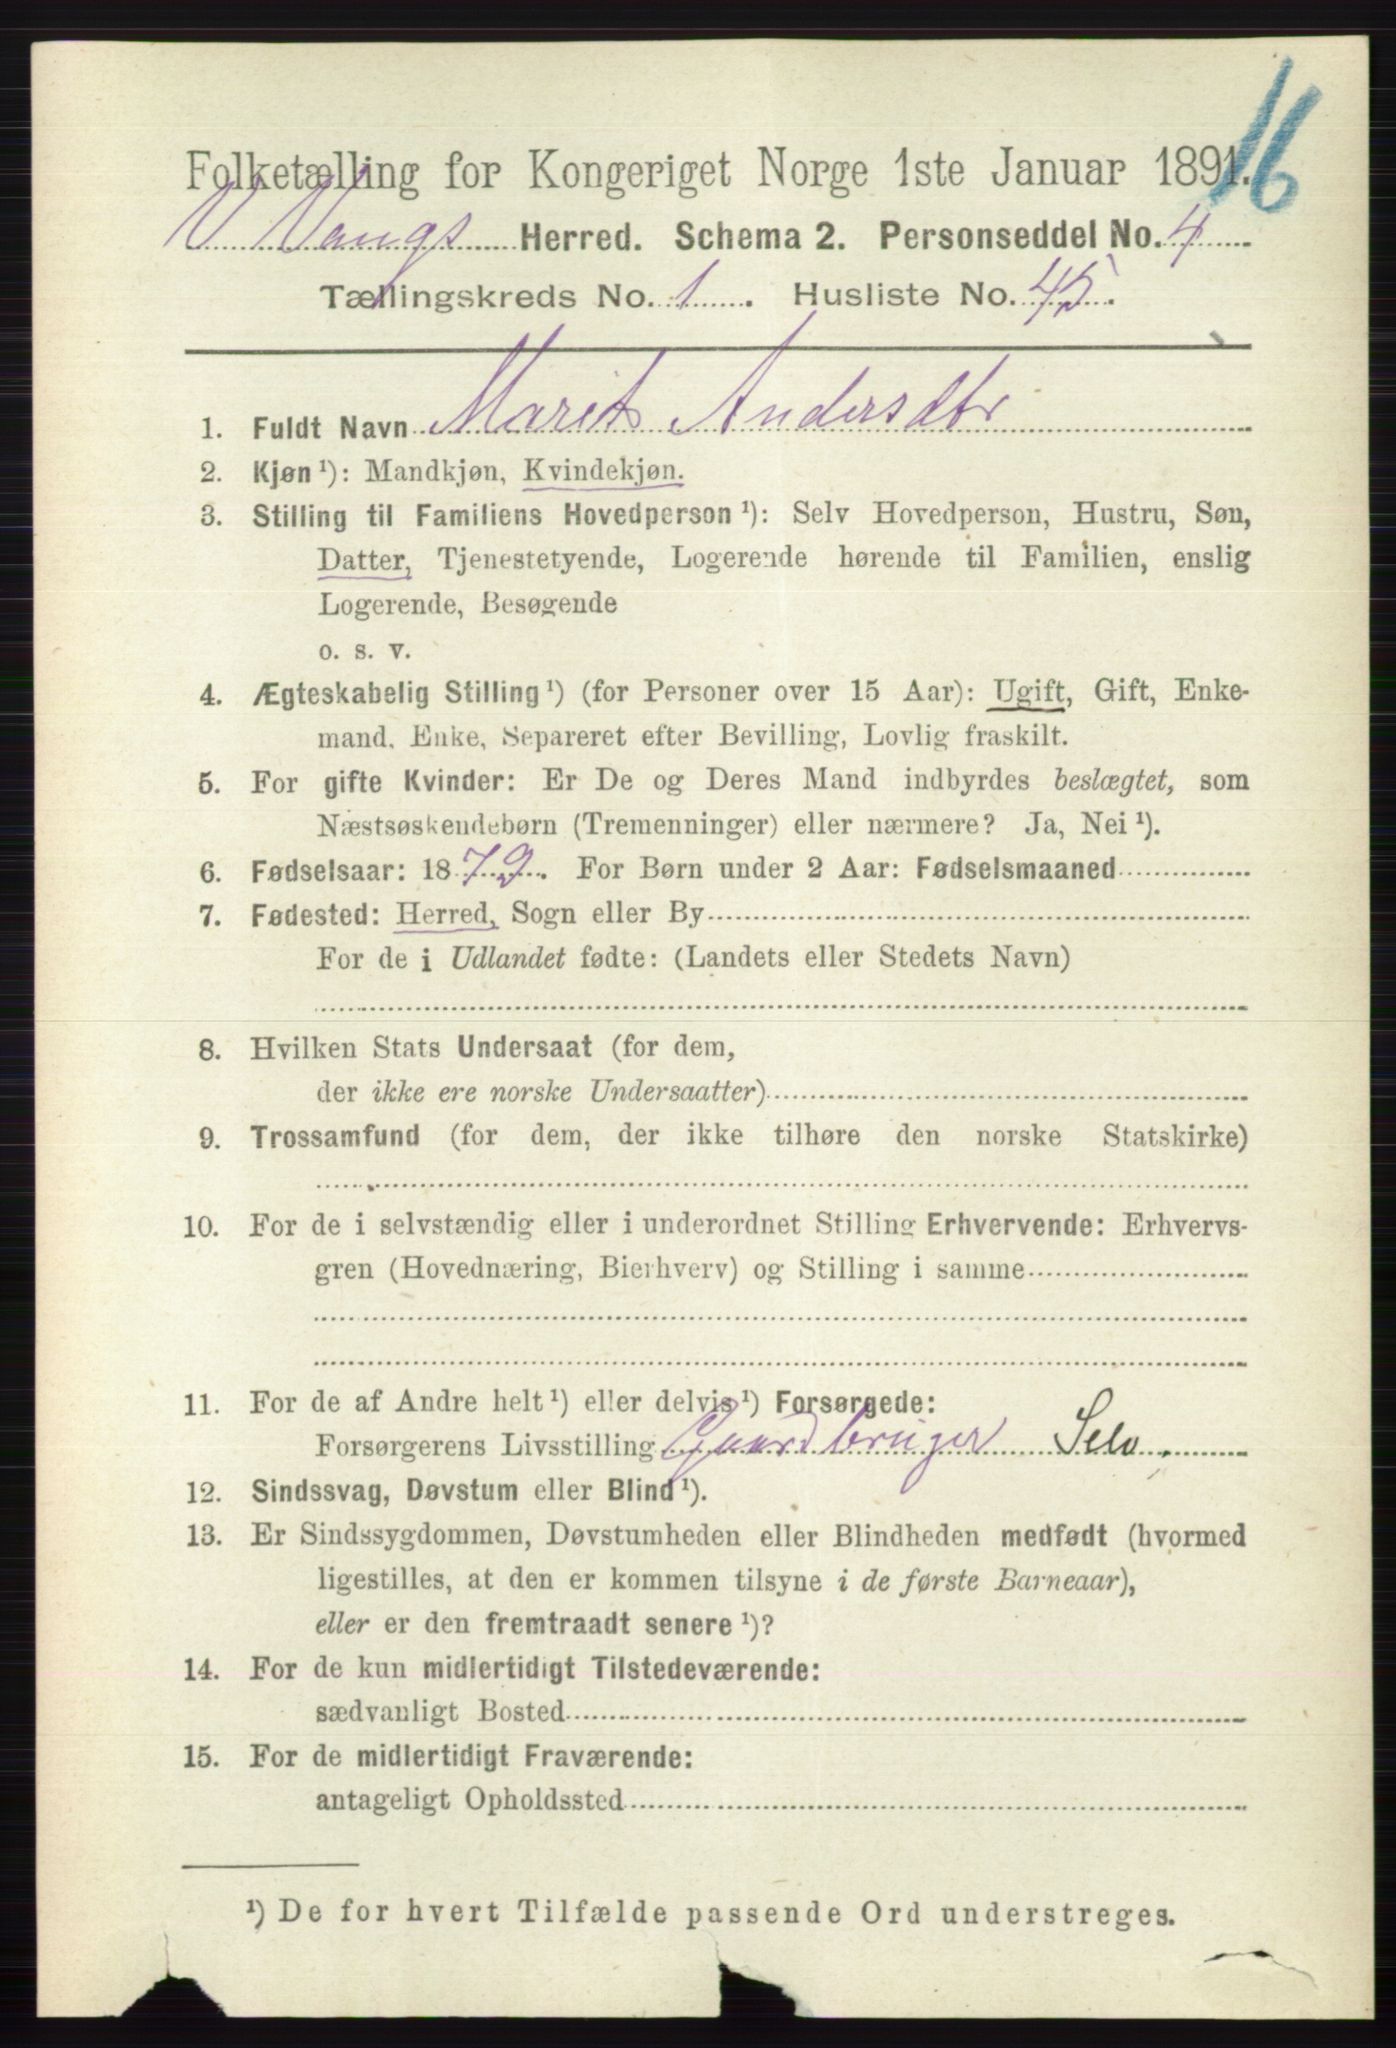 16
Folketælling for Kongeriget Norge 1ste Januar 1891.
V Vangs Herred. Schema 2. Personseddel No. 4
Tællingskreds No. 1. Husliste No. 45.
1. Fuldt Navn Marit Andersdtr
2. Kjøn ¹): Mandkjøn, Kvindekjøn.
3. Stilling til Familiens Hovedperson ¹): Selv Hovedperson, Hustru, Søn,
Datter, Tjenestetyende, Logerende hørende til Familien, enslig
Logerende, Besøgende
o. s. v.
4. Ægteskabelig Stilling ¹) (for Personer over 15 Aar): Ugift, Gift, Enke-
mand, Enke, Separeret efter Bevilling, Lovlig fraskilt.
5. For gifte Kvinder: Er De og Deres Mand indbyrdes beslægtet, som
Næstsøskendebørn (Tremenninger) eller nærmere? Ja, Nei ¹).
6. Fødselsaar: 1879. For Børn under 2 Aar: Fødselsmaaned
7. Fødested: Herred, Sogn eller By
For de i Udlandet fødte: (Landets eller Stedets Navn)
8. Hvilken Stats Undersaat (for dem,
der ikke ere norske Undersaatter)
9. Trossamfund (for dem, der ikke tilhøre den norske Statskirke)
10. For de i selvstændig eller i underordnet Stilling Erhvervende: Erhvervs-
gren (Hovednæring, Bierhverv) og Stilling i samme
11. For de af Andre helt ¹) eller delvis ¹) Forsørgede:
Forsørgerens Livsstilling Gaardbruger Selv.
12. Sindssvag, Døvstum eller Blind ¹).
13. Er Sindssygdommen, Døvstumheden eller Blindheden medfødt (hvormed
ligestilles, at den er kommen tilsyne i de første Barneaar),
eller er den fremtraadt senere ¹)?
14. For de kun midlertidigt Tilstedeværende:
sædvanligt Bosted
15. For de midlertidigt Fraværende:
antageligt Opholdssted
¹) De for hvert Tilfælde passende Ord understreges.